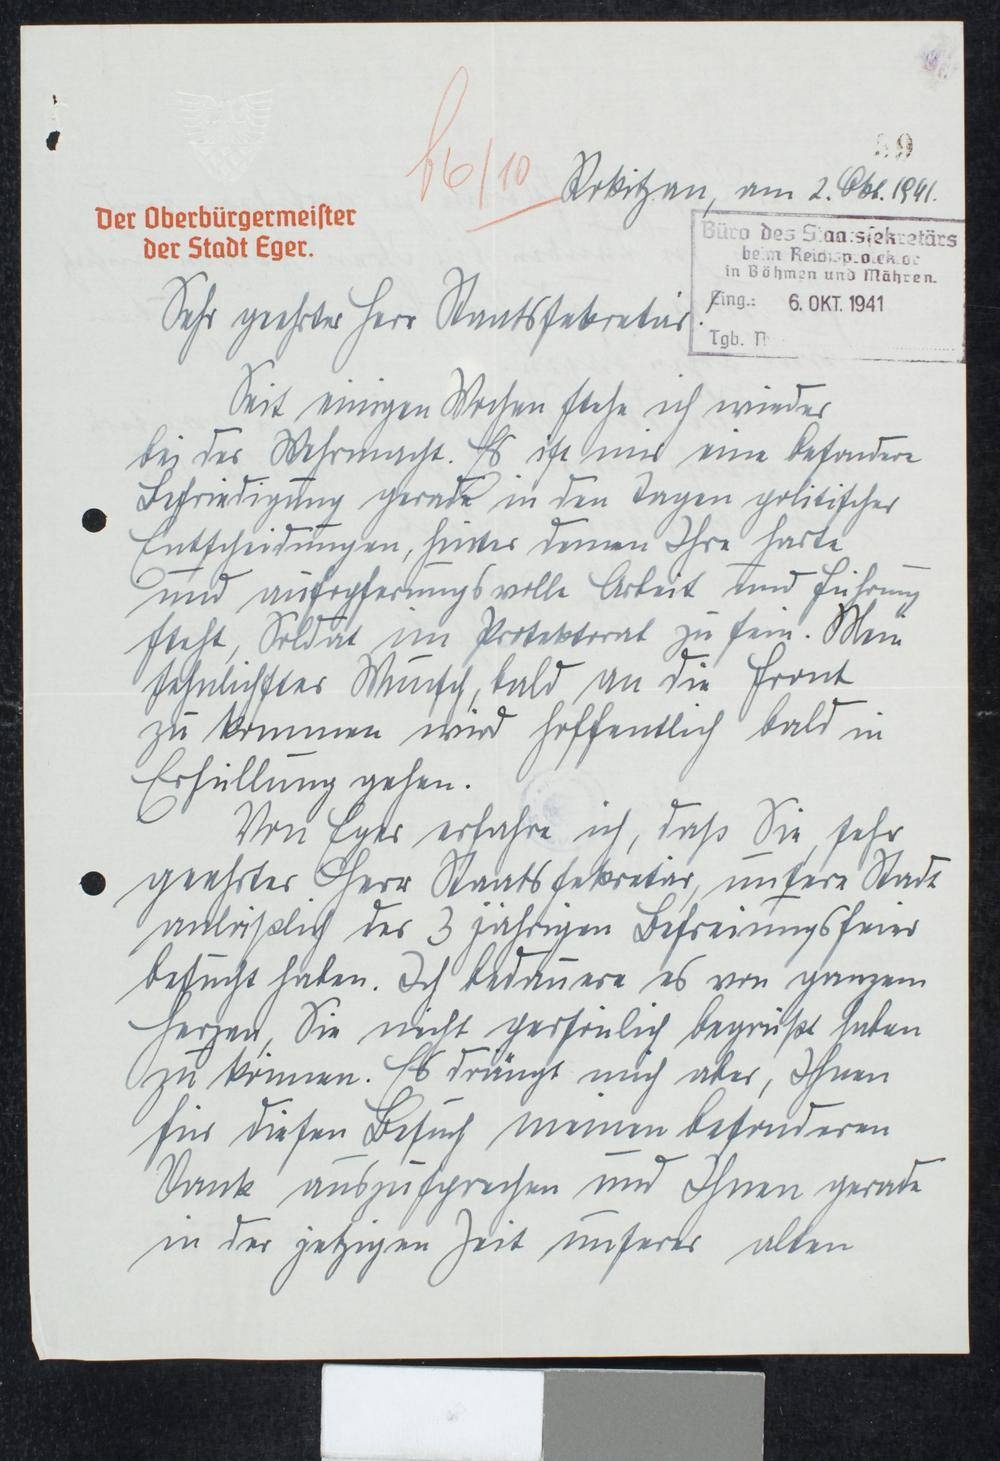 b6/10
89
Rokitzan, am 2. Okt. 1941.
Der Oberbürgermeister
der Stadt Eger.
Büro des Staatssekretärs
beim Reichsprotektor
in Böhmen und Mähren.
Eing.: 6. OKT. 1941
Tgb. N
Sehr geehrter Herr Staatssekretär!
Seit einigen Wochen stehe ich wieder
bei der Wehrmacht. Es ist mir eine besondere
Befriedigung gerade in den Tagen politischer
Entscheidungen, hinter denen Ihre harte
und aufopferungsvolle Arbeit und Führung
steht, Soldat im Protektorat zu sein. Mein
sehnlichster Wunsch, bald an die Front
zu kommen wird hoffentlich bald in
Erfüllung gehen.
Von Eger erfahre ich, daß Sie, sehr
geehrter Herr Staatssekretär, unsere Stadt
anläßlich der 3 jährigen Befreiungsfeier
besucht haben. Ich bedauere es von ganzem
Herzen, Sie nicht persönlich begrüßt haben
zu können. Es drängt mich aber, Ihnen
für diesen Besuch meinen besonderen
Dank auszusprechen und Ihnen gerade
in der jetzigen Zeit unserer alten